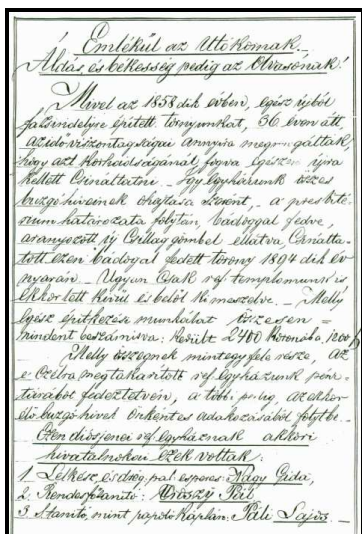 Emlékül az Utókornak.
Áldás, és békesség pedig az Olvasónak!
Mivel az 1858dik évben, egész újból
fazsindelyre épített tornyunkat, 36 évon átt
az idő viszontagságai annyira megrongálták,
hogy azt korhadságánál fogva egészen újra
kellett Csináltatni. Így Egyházunk összes
buzgó híveinek óhajtása szerént, a presbité-
rium határozata folytán, bádoggal fedve,
aranyozott új Csillag gömbel ellátva Csinálta-
tott ezen bádogal fedett torony 1894dik év
nyarán. Ugyan Csak ref. templomunk is
ekkor lett kivül és belől ki meszelve. Melly
egész építkezési munkálat összesen
mindent beszámitva: került 2400 Koronába, 1200 f
Melly összegnek mintegy fele része, az
e Czélra megtakarított ref. egyházunk pénz-
tárából fedeztetvén, a többi p. ig, az ekkor
élő buzgó hívek önkéntes adakozásából folyt be.
Ezen diósjenei ref. egyháznak akkori
hivatalnokai ezek voltak:
1. Lelkész, és drég. pal. esperes: Nagy Gida,
2. Rendes fő tanító: Pál
3. A tanító, mint papdó káplán: Páli Lajos.